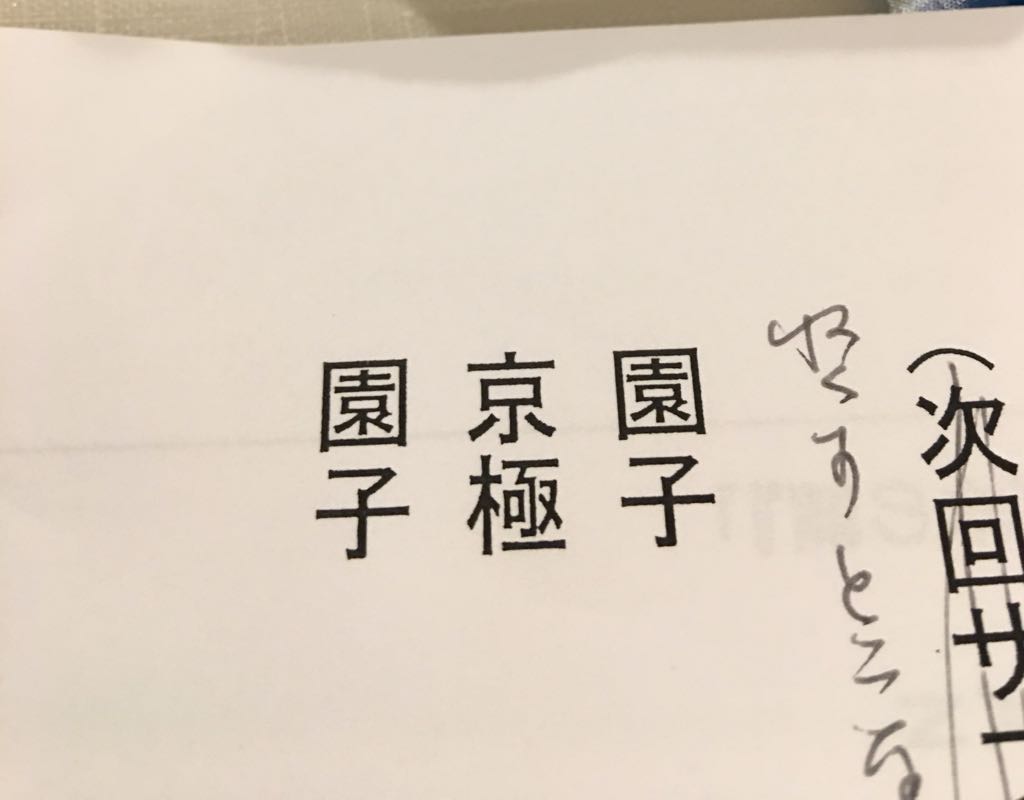 （次回サ
すとこ
園子
京極
園子